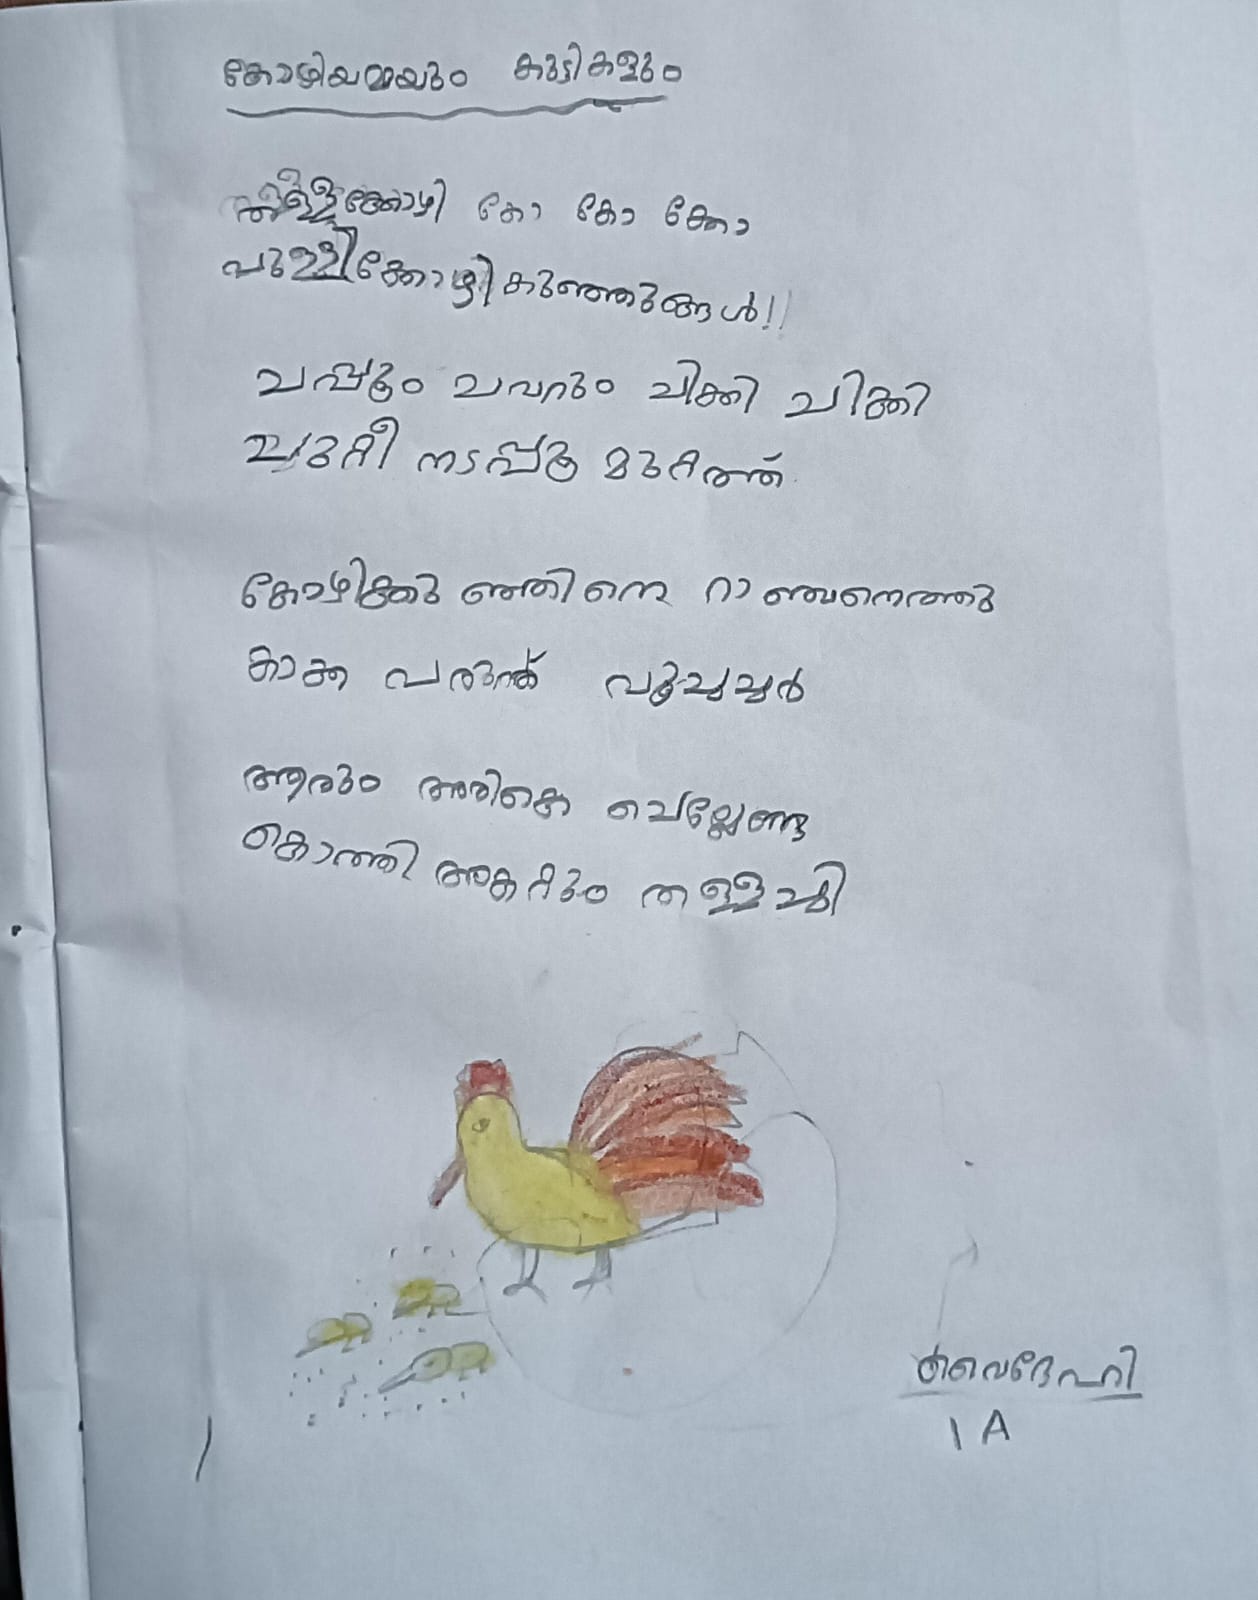 കോഴിയമ്മയും കുട്ടികളും
തള്ളക്കോഴി കോ കോ ക്കോ
പുള്ളിക്കോഴി കുഞ്ഞുങ്ങൾ!!
ചപ്പും ചവറും ചിക്കി ചിക്കി
ചുറ്റി നടപ്പൂ മുറ്റത്ത്
കോഴിക്കുഞ്ഞിനെ റാഞ്ചാനെത്തു
കാക്ക പരുന്ത് പൂച്ചച്ചർ
ആരും അരികെ ചെല്ലേണ്ട
കൊത്തി അകറ്റും തള്ളച്ചി
വൈദേഹി
1 A